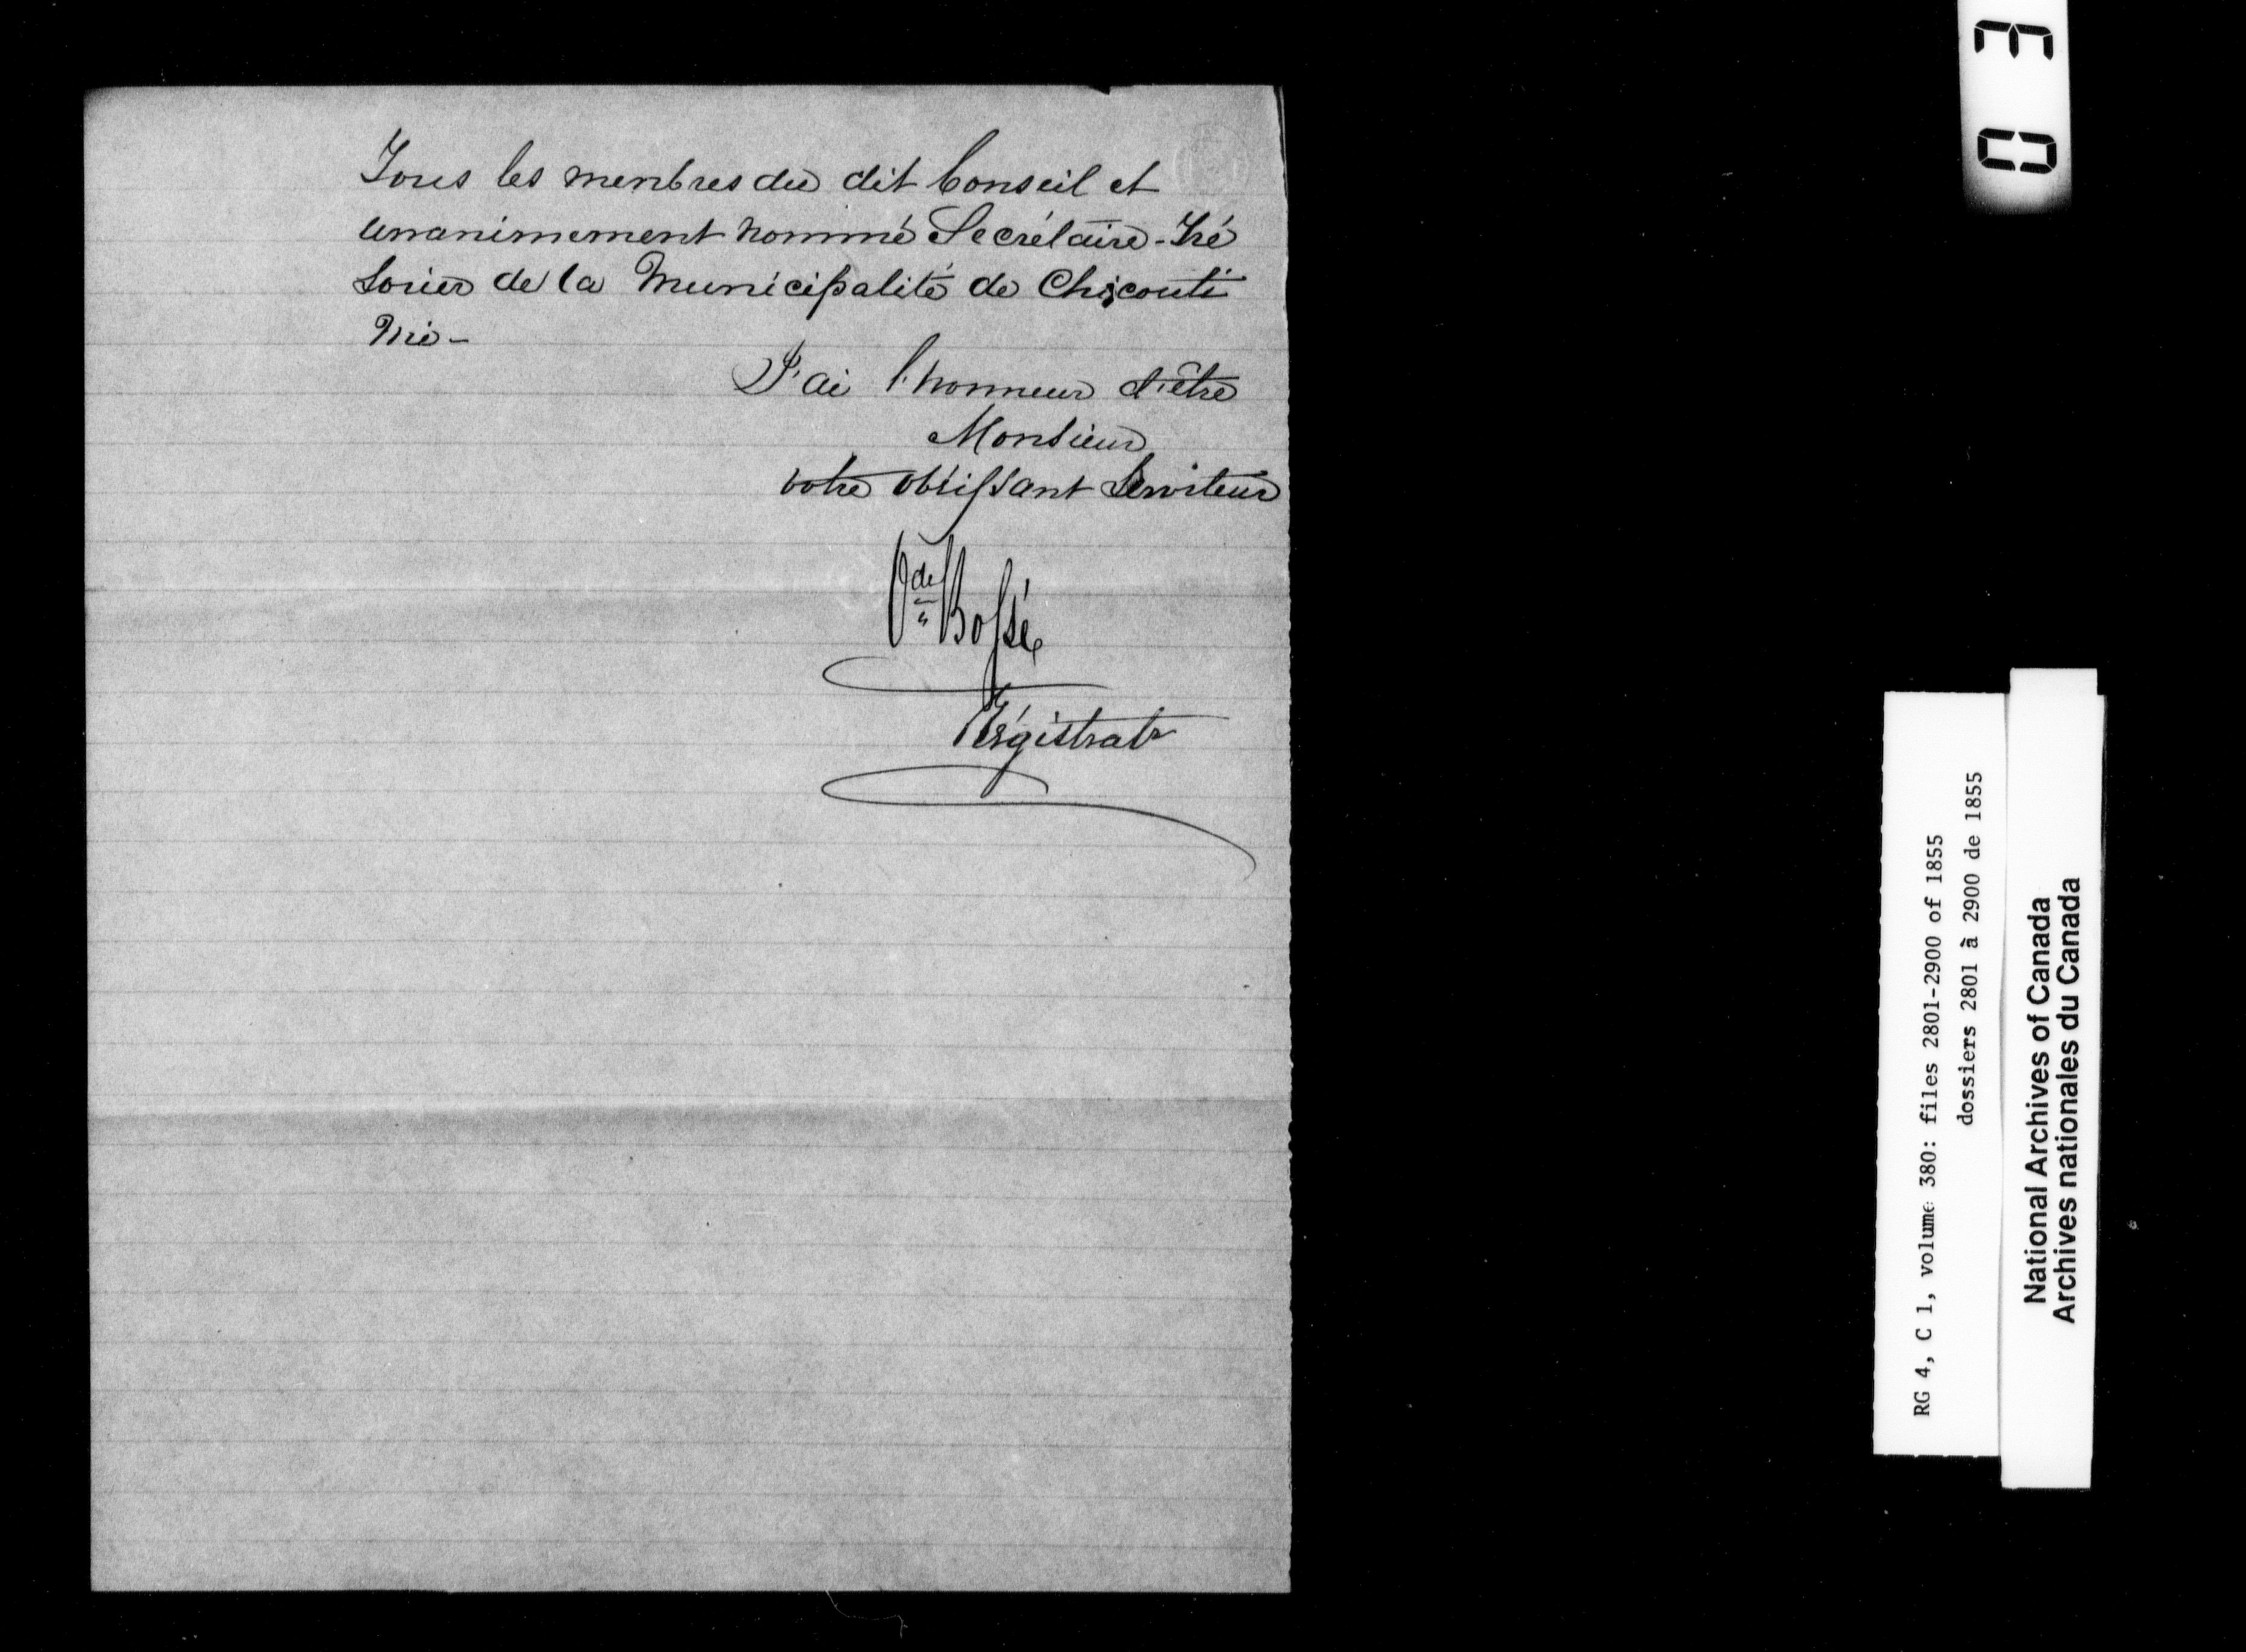 Tous les menbres du dit Conseil et
unanimement nommé Secrétaire-Tré
sorier de la Municipalité de Chicouti
mi-
J'ai l'honneur d'être
Monsieur
votre obéissant Serviteur
Ode Bossé
Régistratr
03
RG 4, C 1, volume 380: files 2801-2900 of 1855
dossiers 2801 à 2900 de 1855
National Archives of Canada
Archives nationales du Canada